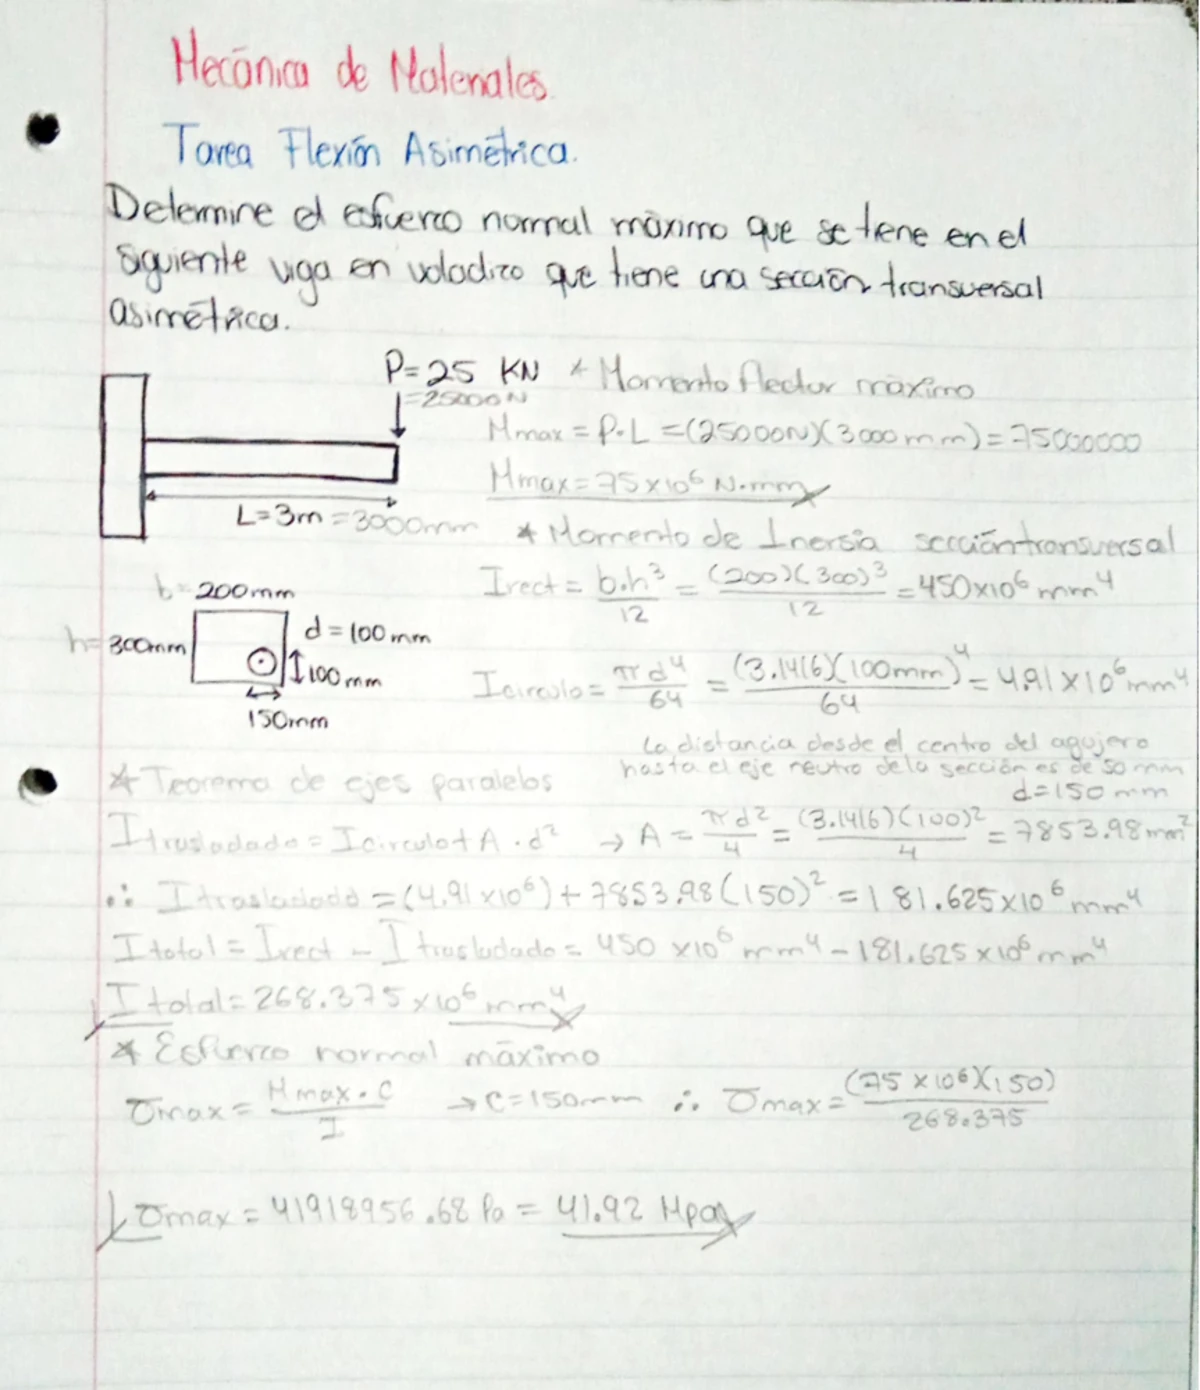 Mecánica de Materiales.
Tarea Flexión Asimétrica.
Determine el esfuerzo normal máximo que se tiene en el
siguiente viga en voladizo que tiene una sección transversal
asimétrica.
P=25 KN
=25000N
L=3m =3000mm
* Momento flector máximo
Mmax = P·L =(25000N)(3000mm)=75000000
Mmax=75x10⁶ N·mm
* Momento de Inersia seccióntransversal
b= 200mm
h= 300mm
d=100mm
100mm
150mm
Irect = b·h³/12 = (200)(300)³/12 =450x10⁶ mm⁴
Icirculo= πd⁴/64 = (3.1416)(100mm)⁴/64 = 4.91x10⁶mm⁴
La distancia desde el centro del agujero
hasta el eje neutro de la sección es de 50 mm
d=150mm
* Teorema de ejes paralelos
Itrasladado=Icirculo+A·d² → A= πd²/4 = (3.1416)(100)²/4 = 7853.98mm²
∴ Itrasladado =(4.91x10⁶)+7853.98(150)² =181.625x10⁶ mm⁴
Itotal= Irect - Itrasladado= 450 x10⁶ mm⁴ - 181.625x10⁶mm⁴
Itotal=268.375x10⁶ mm⁴
* Esfuerzo normal máximo
σmax= Mmax·C/I → C=150mm ∴ σmax=(75x10⁶)(150)/268.375
σmax = 41918956.68 Pa = 41.92 Mpa